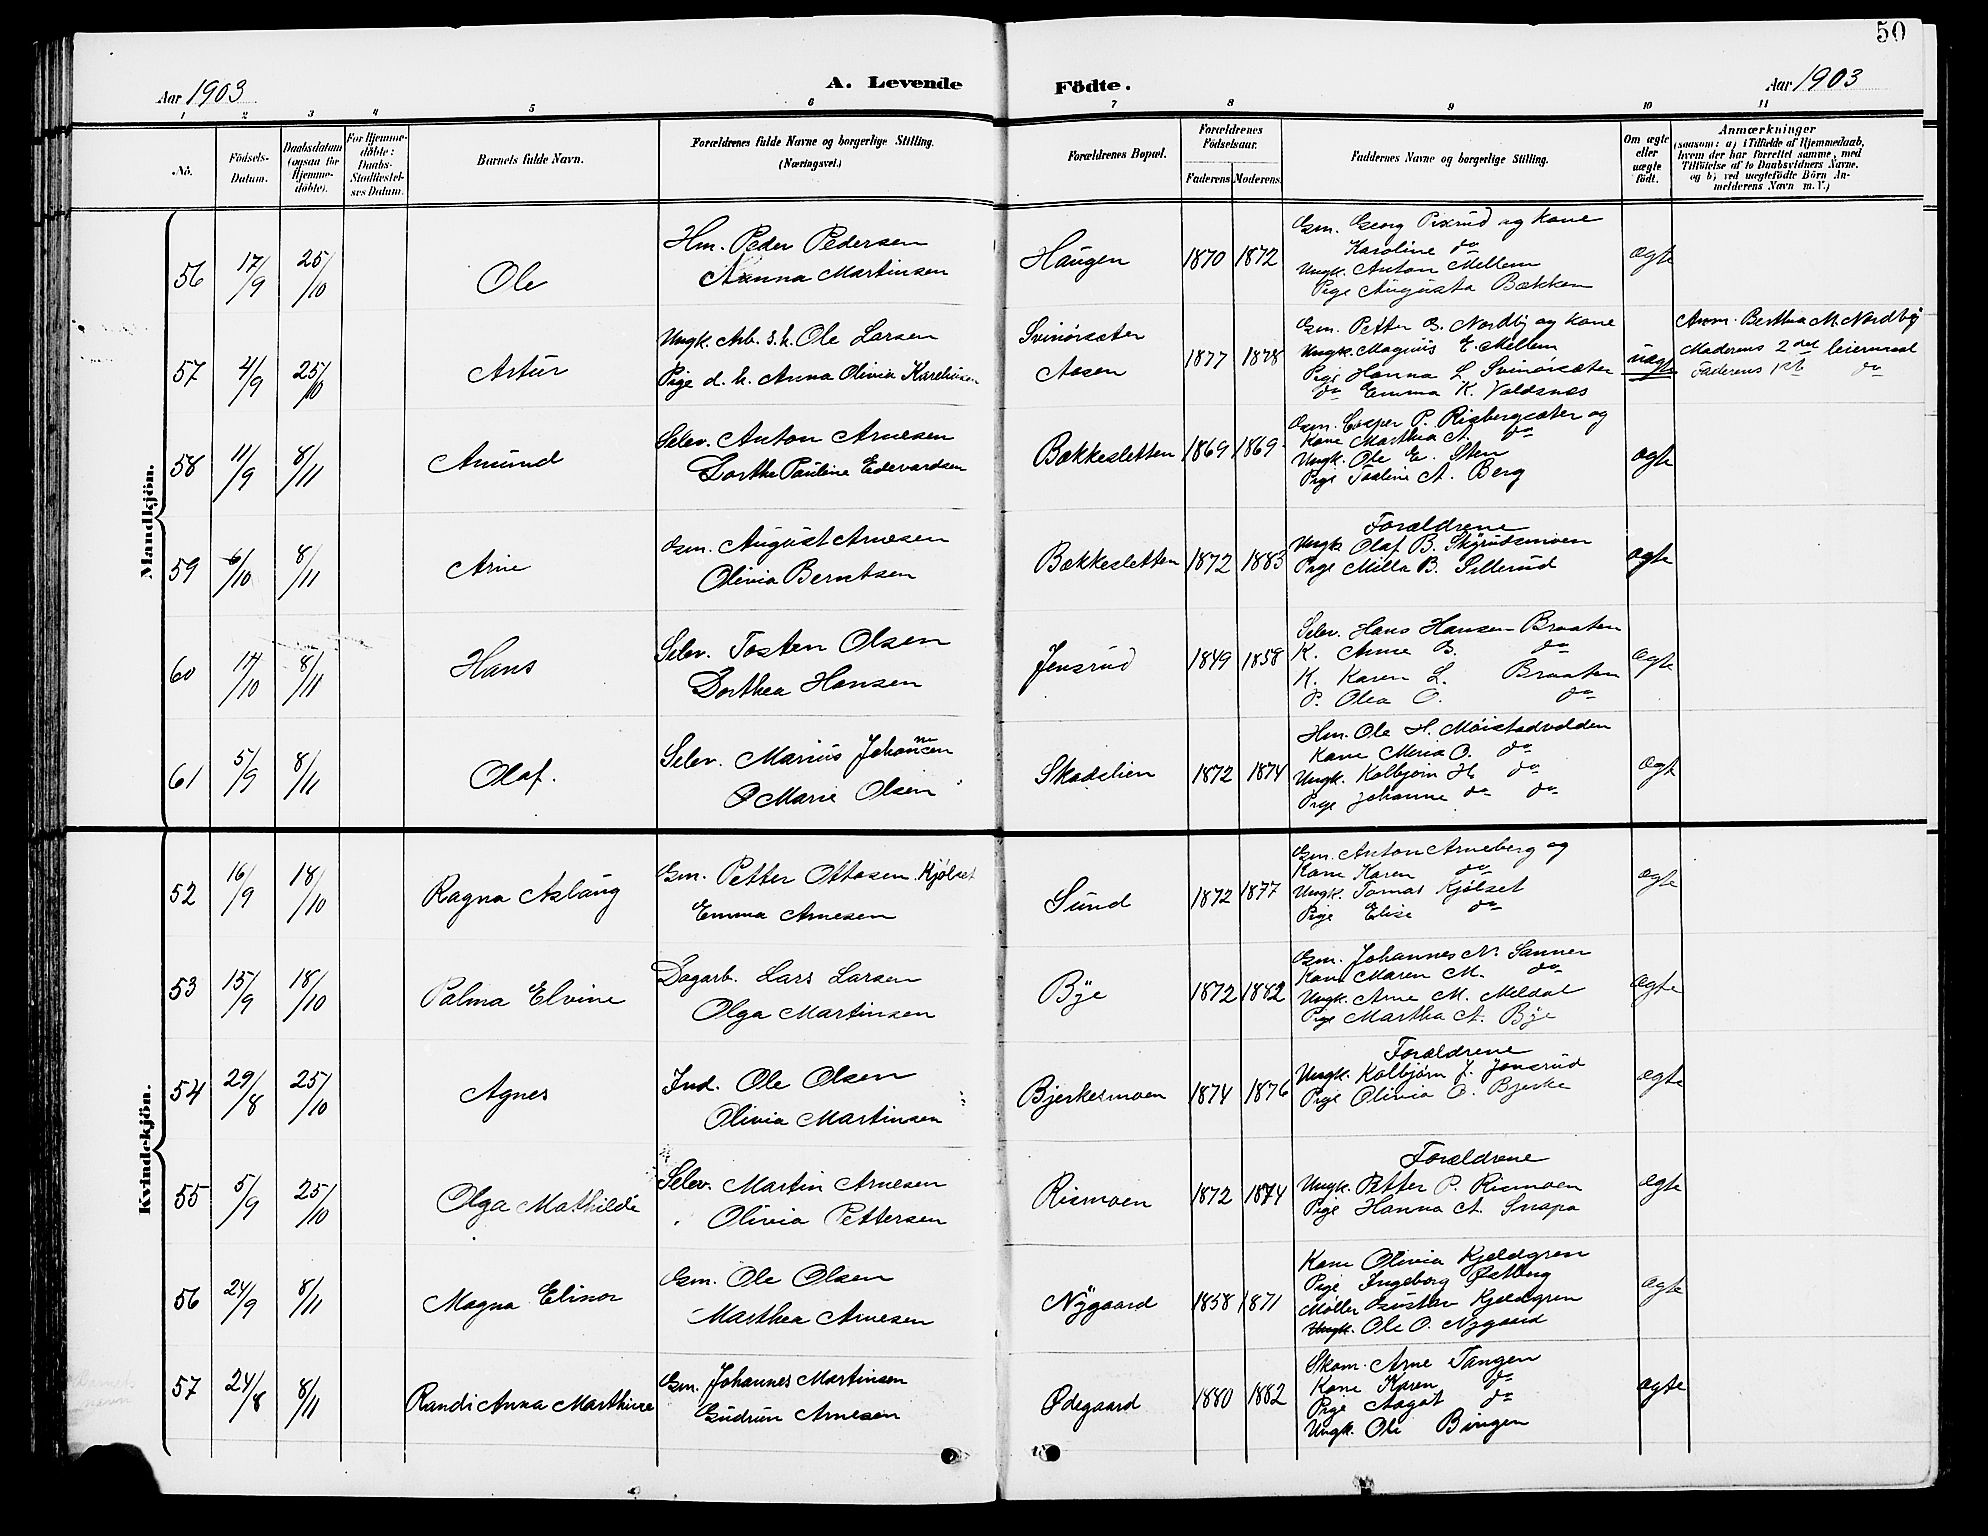 50
Aar 1903
A. Levende
Födte.
Aar 1903
1 2 3 4 5 6 7 8 9 10 11
No.
Födsels-
Datum.
Daabsdatum
(ogsaa for
Hjemme-
döbte).
For Hjemme-
döbte:
Daabs-
Stadfæstel-
ses Datum.
Barnets fulde Navn.
Forældrenes fulde Navne og borgerlige Stilling.
(Næringsvei.)
Forældrenes Bopæl.
Forældrenes
Födselsaar.
Faderens Moderens
Faddernes Navne og borgerlige Stilling.
Om ægte
eller
uægte
födt.
Anmærkninger
(saasom: a) i Tilfælde af Hjemmedaab,
hvem der har forrettet samme, med
Tilföielse af to Daabsvidners Navne,
og b) ved uægtefödte Börn An-
melderens Navn m. V.)
Mandkjön.
56 17/9 25/10 Ole
Hm. Peder Pedersen
Anna Martinsen
Haugen 1870 1872
Gm. Georg Pixrud og Kone
Karoline do
Ungk. Anton Mellem
Pige Augusta Bækken
ægte
57 4/9 25/10 Artur
Ungk. Arb. s.k. Ole Larsen
Pige d. k. Anna Olivia Karelinsen
Svinörsæter
Aasen
1877 1878
Gm. Petter B. Nordby og Kone
Ungk. Magnus E. Mellem
Pige Hanna L. Svinörsæter
do Emma K. Voldsnæs
uægte
Anm. Berthea M. Nordby
Moderens 2det leiermaal
Faderens 1ste do
58 11/9 8/11 Amund
Selv. Anton Arnesen
Dorthe Pauline Edevardsen
Bækkesletten 1869 1869
Gsm. Casper P. Risbergsæter og
Kone Marthea A. do
Ungk. Ole E. Sten
Pige A. Berg
ægte
59 6/10 8/11 Arne
Gsm. August Arnesen
Olivia Berntsen
Bækkesletten 1872 1883
Forældrene
Ungk Olaf B. Skyrudsmoen
Pige Milla B. Sillerud
ægte
60 17/10 8/11 Hans
Selv. Tosten Olsen
Dorthea Hansen
Jensrud 1849 1858
Selv. Hans Hansen Braaten
K. Anne B. do
K. Karen L. Braaten
P. Olea O. do
ægte
61 5/9 8/11 Olaf.
Selv. Marius Johannesen
O Marie Olsen
Skadslien 1872 1874
Hm. Ole H. Möistadvolden
Kone Maria O. do
Ungk. Kolbjörn H. do
Pige Johanne do do
ægte
Kvindekjön.
52 16/9 18/10 Ragna Aslaug
Gm. Petter Ottosen Kjölset
Emma Arnesen
Sund 1872 1877
Gm. Anton Arneberg og
Kone Karen do
Ungk. Tomas Kjölset
Pige Elise do
ægte
53 15/9 18/10 Palma Elvine
Dagarb. Lars Larsen
Olga Martinsen
Bye 1872 1882
Gm. Johannes N. Sanner
Kone Maren M. do
Ungk. Arne M. Meldal
Pige Martha A. Bye
ægte
54 29/8 25/10 Agnes
Ind. Ole Olsen
Olivia Martinsen
Bjerkesmoen 1874 1876
Forældrene
Ungk. Kolbjörn J. Jonsrud
Pige Olivia O. Bjerke
ægte
55 5/9 25/10 Olga Mathilde
Selv. Martin Arnesen
Olivia Pettersen
Rismoen 1872 1874
Forældrene
Ungk. Petter P. Rismoen
Pige Hanna A. Snapa
ægte
56 24/9 8/11 Magna Elinor
Gsm. Ole Olsen
Marthea Arnesen
Nygaard 1858 1871
Kone Olivia Kjeldgren
Pige Ingeborg Østberg
Møller Gustav Kjeldgren
Ungk. Ole O. Nygaard
ægte
57 24/8 8/11 Randi Anna Marthine
Gm. Johannes Martinsen
Gudrun Arnesen
Ødegaard 1880 1882
Skom. Arne Tangen
Kone Karen do
Pige Aagot do
Ungk. Ole Bingen
ægte